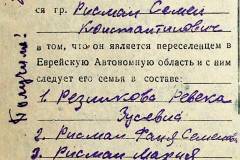 ся гр. Рисман Семен
Константинович
в том, что он является переселенцем в
Еврейскую Автономную область и с ним
следует его семья в составе:
1. Резникова Ревека
2. Рисман Фаня Семенов
3. Рисман Мария
Получила: